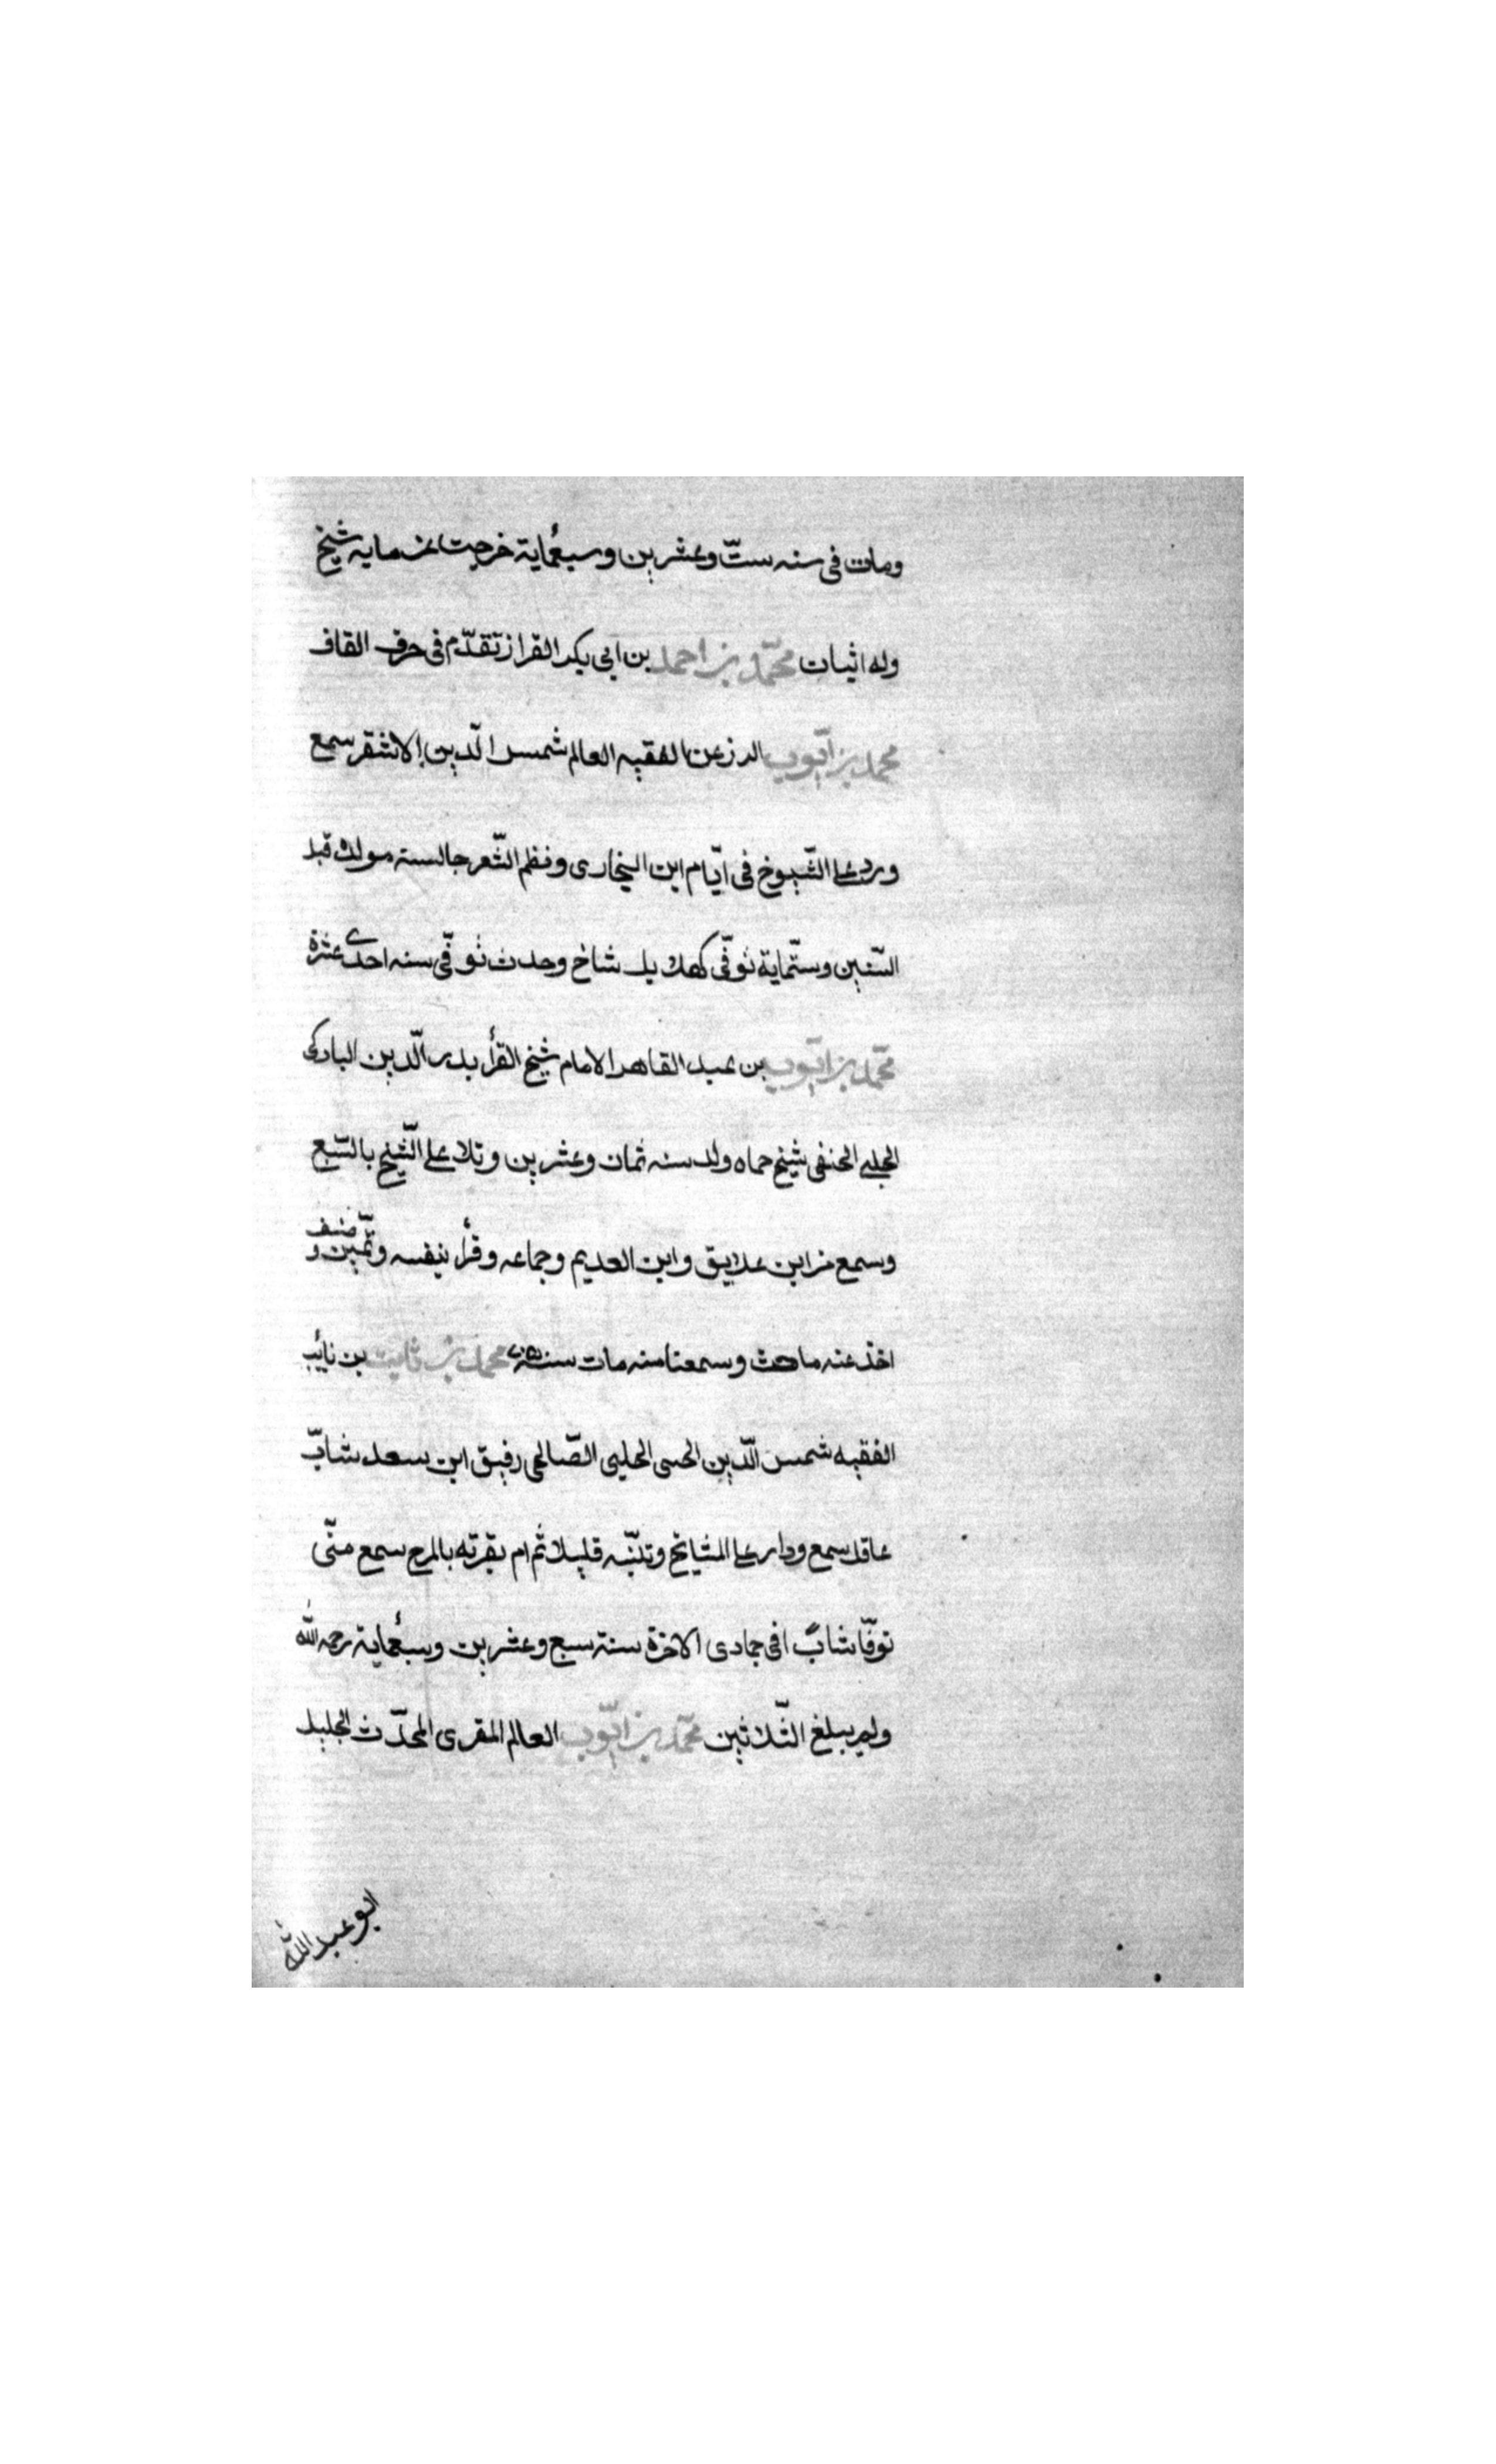 ومات فى سنه ستّ وعشرين وسبعُماية خرجت عن ماية شيخ
وله اثبات محمّد بن احمد بن ابى بكر القزاز تقدّم فى حرف القاف
محمد بن ايّوب الفقيه العالم شمس الدّين الاشقر سمع
ورد على الشّيوخ فى ايّام ابن البخارى ونظم الشّعر جالسته مولده قبل
السّتين وستّماية توفّى كهلا بل شاخ وحدث توفّى سنه احدى عشرة
محمّد بن ايّوب بن عبد القاهر الامام شيخ القرأ بدر الّدين البادكى
الحلبى الحنفى شيخ حماه ولد سنه ثمان وعشرين وتلا على الشّيخ بالسّبع
وسمع من ابن علايق وابن العديم وجماعه وقرأ بنفسه وتميّن وصنف
اخذ عنه وسمعنا منه مات سنه محمد بن ثابت بن نايب
الفقيه شمس الدّين الحسى الحلبى الصّالحى رفيق ابن سعد شابّ
عاقل سمع ودار على المشايخ وتنبّه قليلا ثم ام بقرته بالمرج سمع منّى
توفّا شابّا فى جمادى الاخرة سنة سبع وعشرين وسبعُماية رحمه الله
ولم يبلغ الثّلاثين محمّد بن ايّوب العالم المقرى المحدّث الجليل
ابو عبد الله